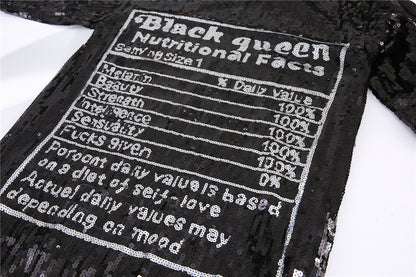 Black queen
Nutritional Facts
Serving Size 1
% Daily Value
Melanin 100%
Beauty 100%
Strength 100%
Intelligence 100%
Sensuality 100%
Fucks given 0%
Percent daily value is based
on a diet of self love
Actual daily values may
depending on mood